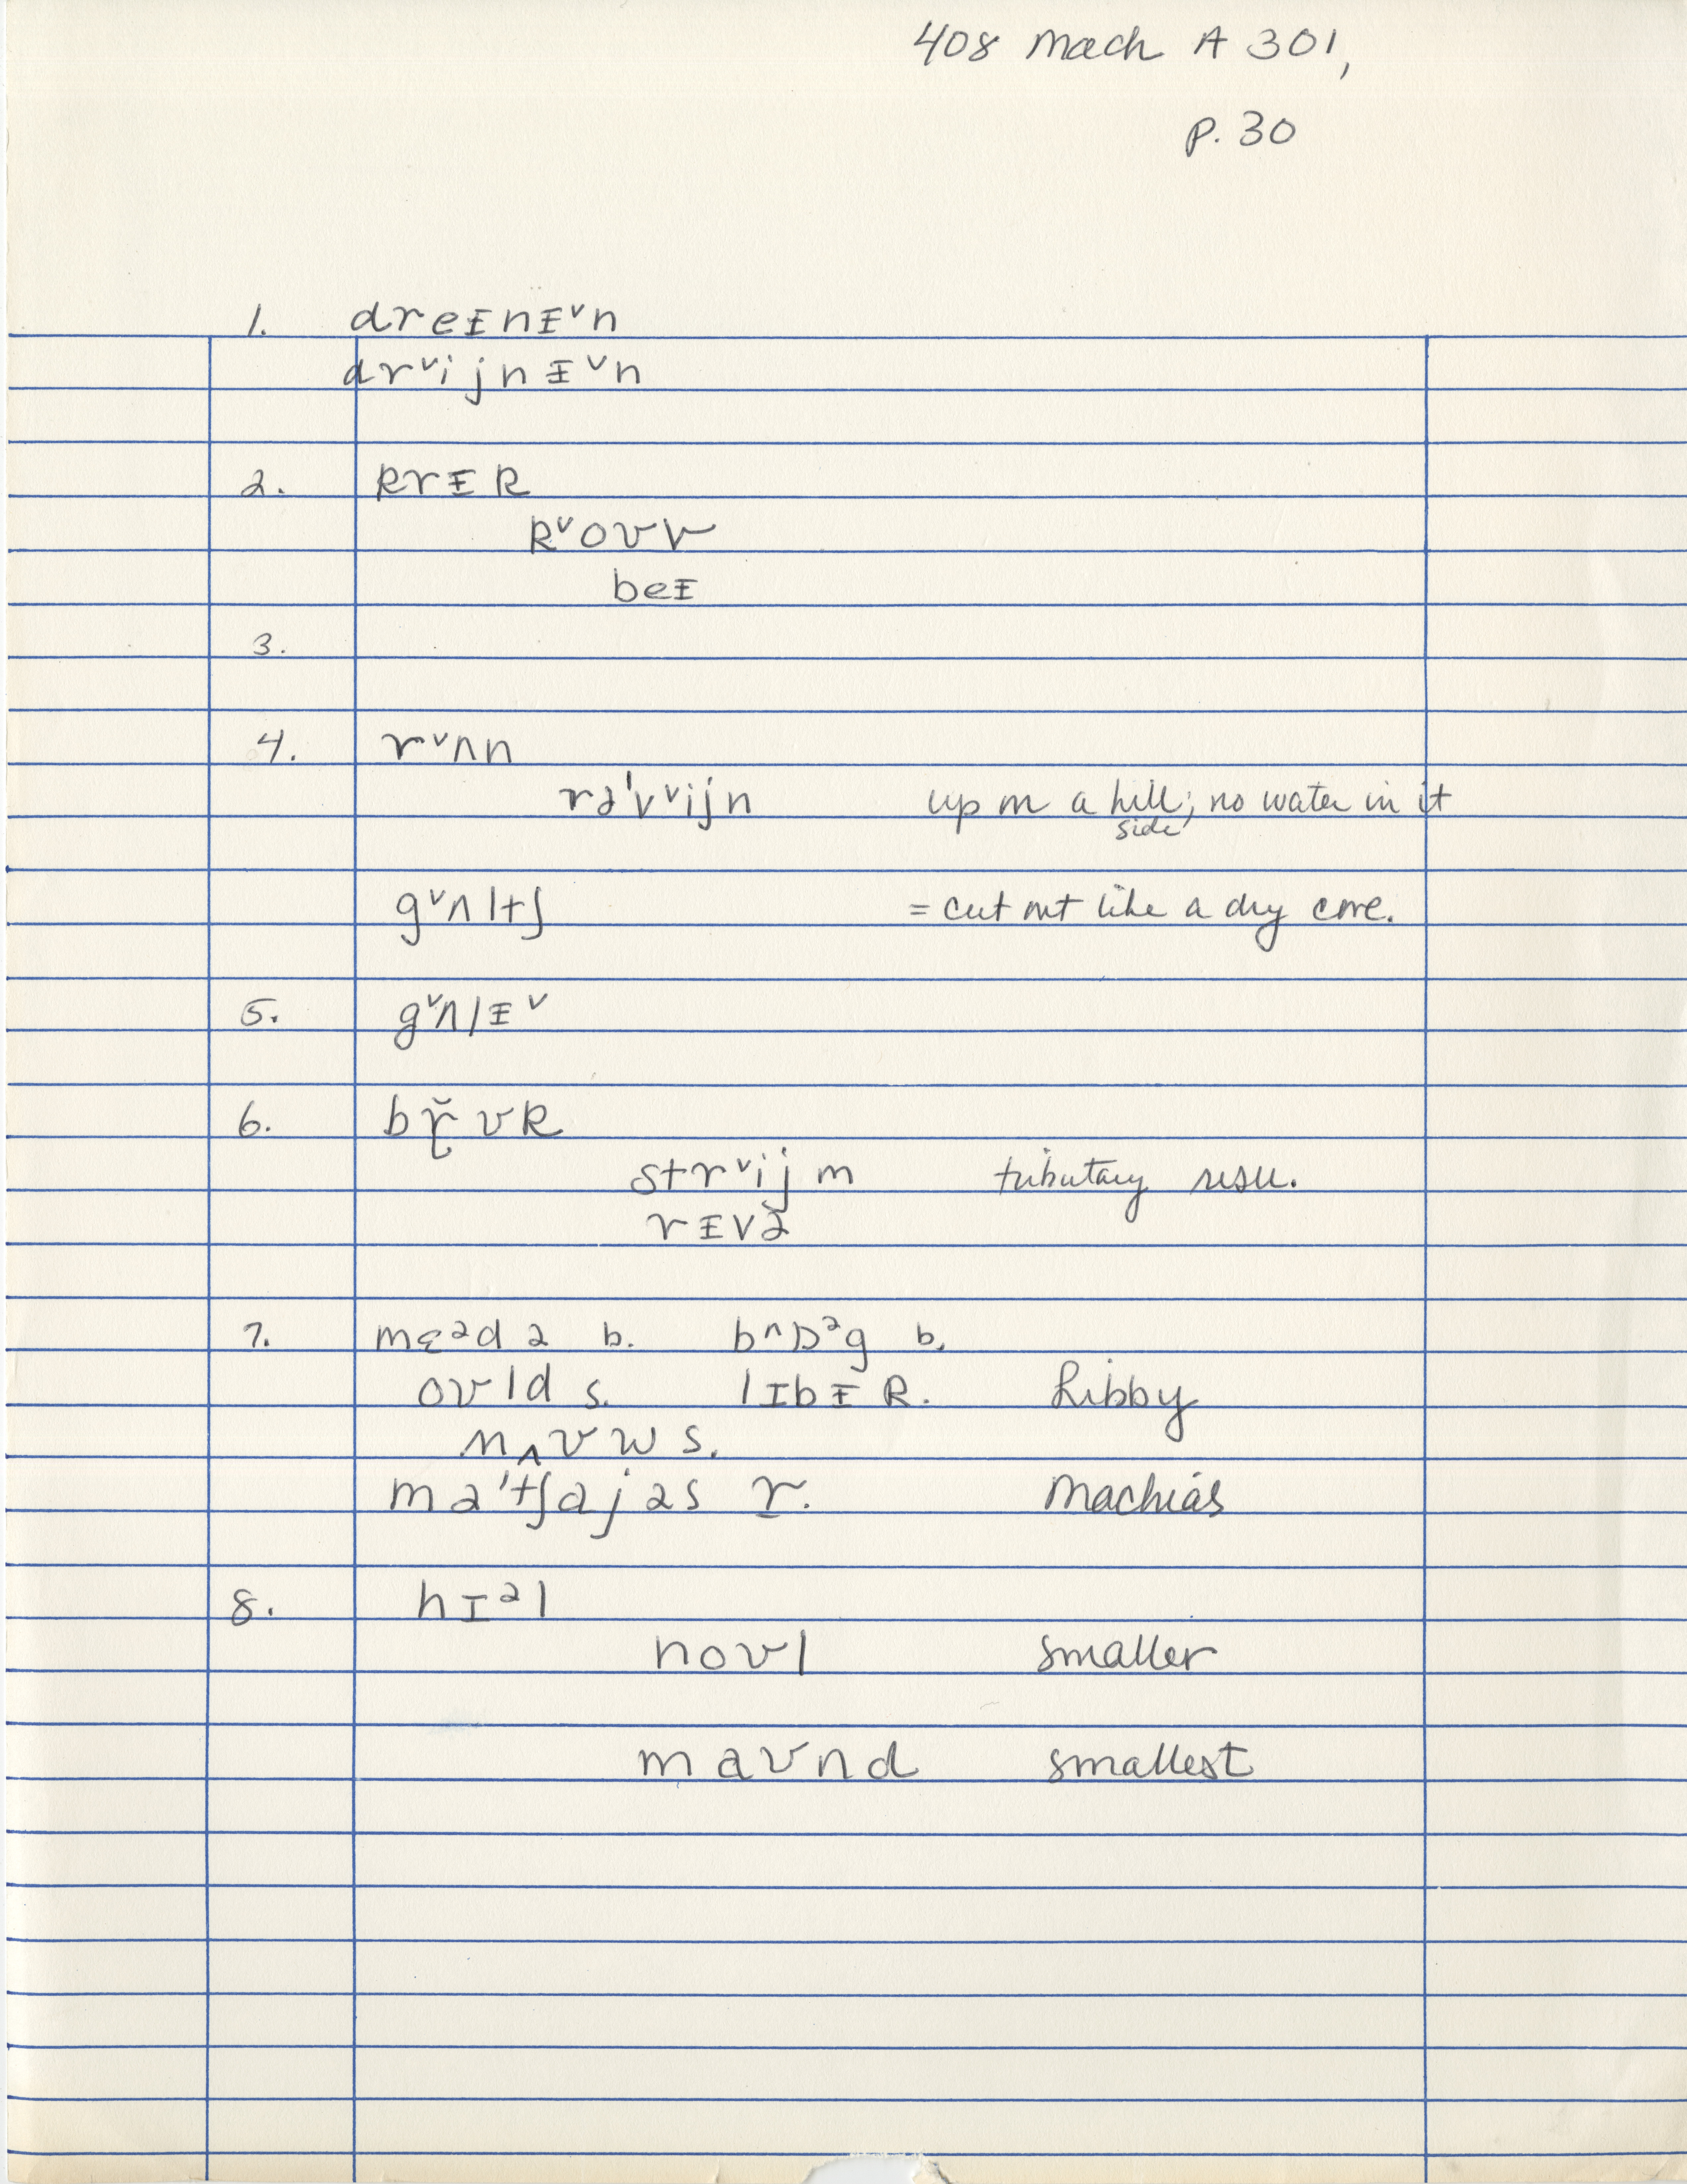 408 Mach A 301,
p. 30
1. dreᵻnᵻ˅n
dr˅ijnᵻ˅n
2. krᵻk
k˅oʊv
beᵻ
3.
4. r˅ʌn
rə'v˅ijn up on a hill; no water in it
side
g˅ʌltʃ = cut out like a dry cove.
5. g˅ʌlᵻ˅
6. bř̯ʊk
str˅ijm tributary
rᵻvə
7. mɛᵊdə b. b^ɒᵊg b.
oʊld s. lɪbᵻ R. Libby
mʌʊw s.
mə'tʃajəs r. Machias
8. hɪᵊl
noʊl smaller
maʊnd smallest